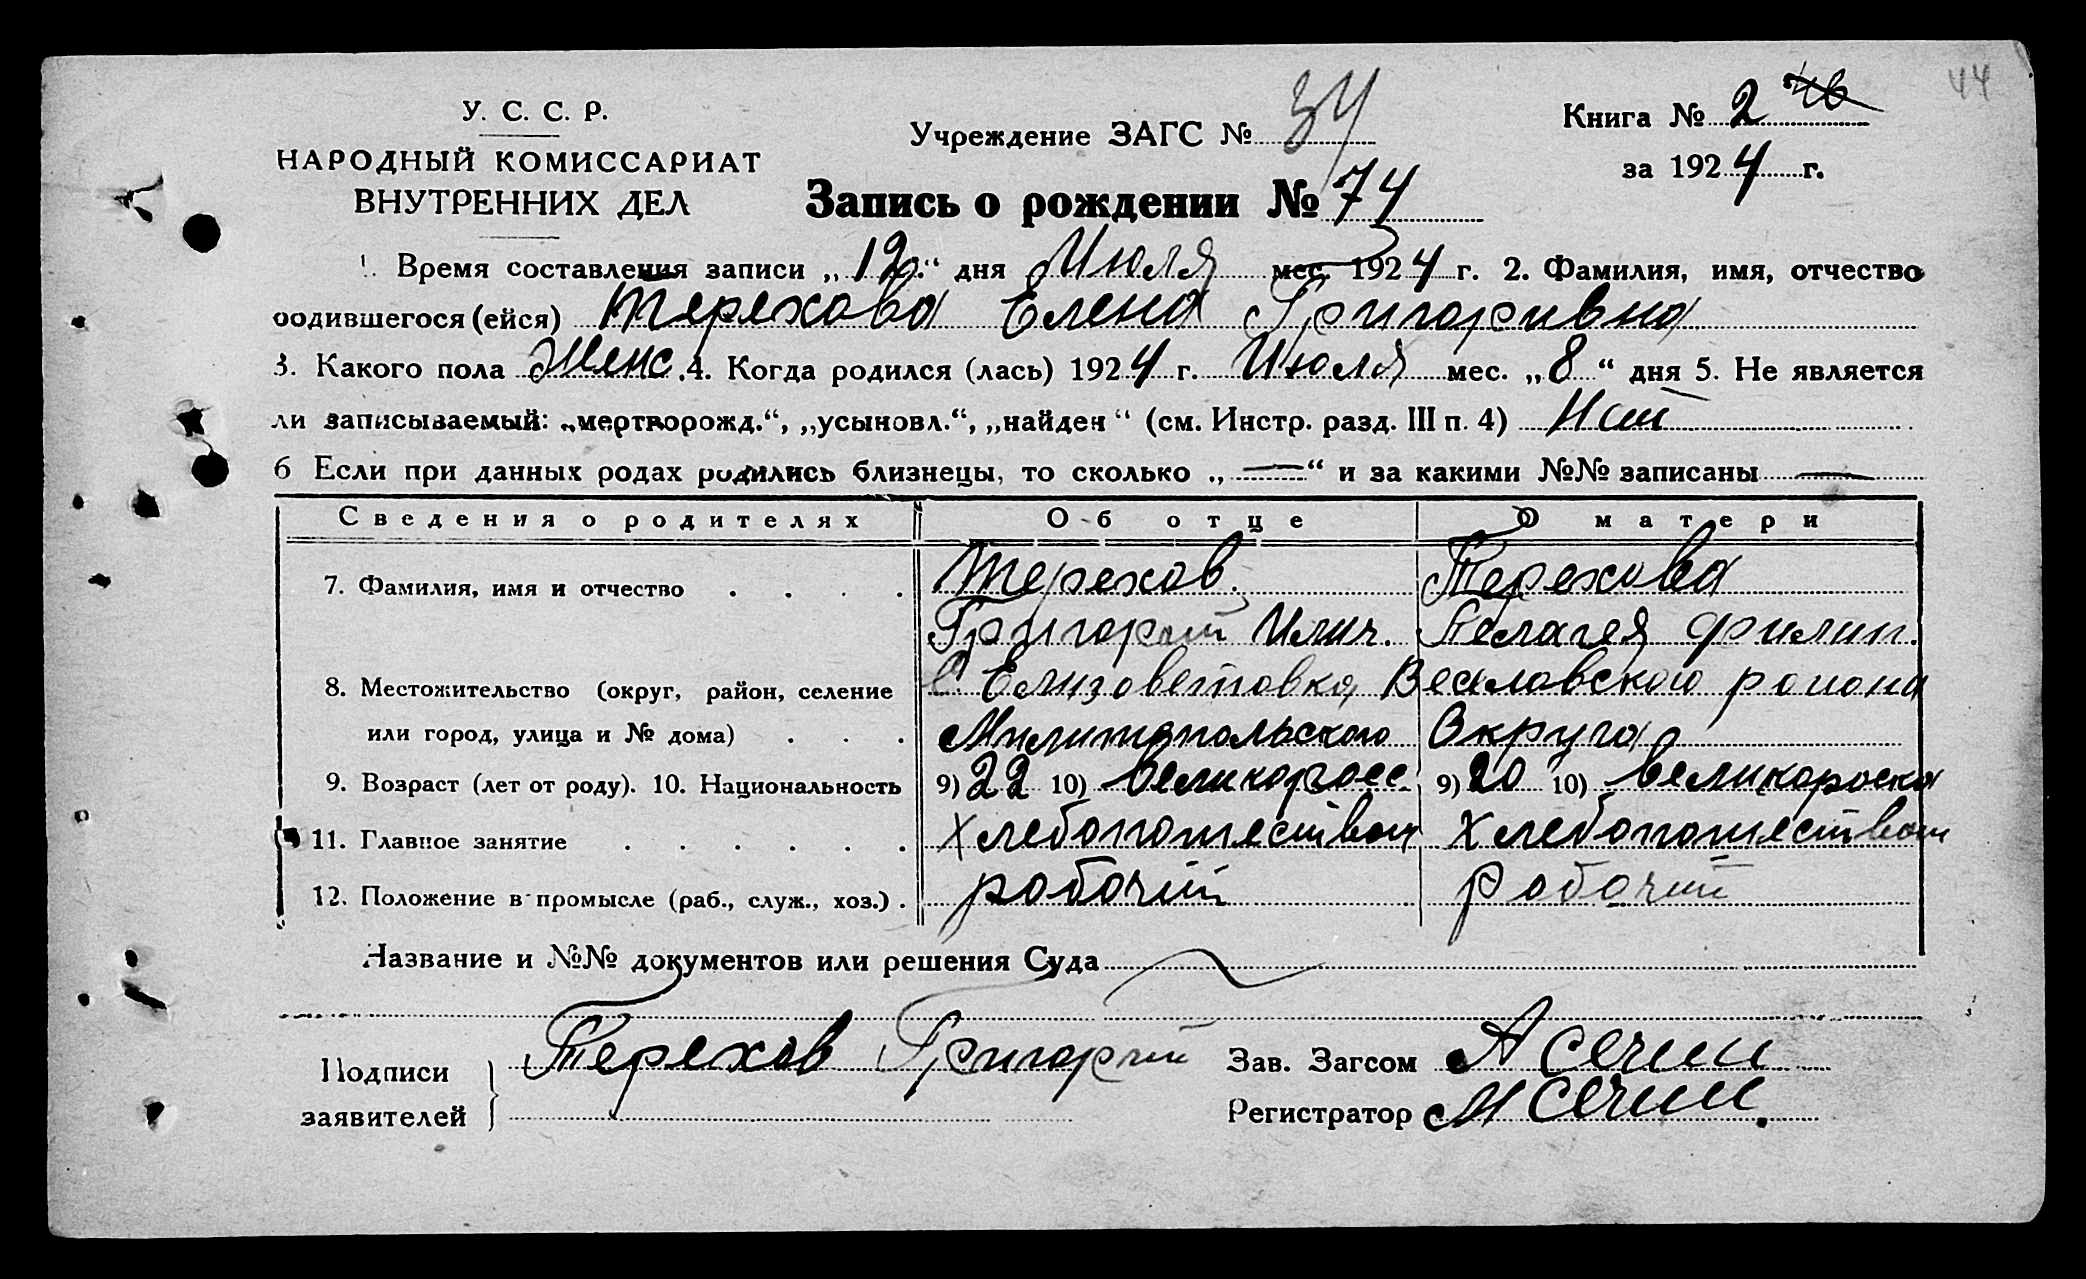 44
У. С. С. Р.
НАРОДНЫЙ КОМИССАРИАТ
ВНУТРЕННИХ ДЕЛ
Учреждение ЗАГС №
Книга № 2
за 1924 г.
Запись о рождении № 74
1. Время составления записи „12“ дня Июля мес. 1924 г. 2. Фамилия, имя, отчество
родившегося (ейся) Терехова Елена Григоривна
3. Какого пола Женс. 4. Когда родился (лась) 1924 г. Июля мес. „8“ дня 5. Не является
ли записываемый: „мертворожд.“, „усыновл.“, „найден“ (см. Инстр. разд. III п. 4) Нет
6 Если при данных родах родились близнецы, то сколько „—“ и за какими №№ записаны —
Сведения о родителях Об отце О матери
7. Фамилия, имя и отчество . . . . Терехов. Терехова
Григорий Илич. Пелагея Филип.
8. Местожительство (округ, район, селение с. Елизоветовка Веселовского района
или город, улица и № дома) . . . Милитопольского Округа
9. Возраст (лет от роду). 10. Национальность 9) 22 10) великоросс. 9) 20 10) великороска
11. Главное занятие . . . . . . Хлебопошеством Хлебопошеством
12. Положение в промысле (раб., служ., хоз.) . рабочий Рабочий
Название и №№ документов или решения Суда
Подписи
заявителей
Терехов Григорий
Зав. Загсом
Регистратор